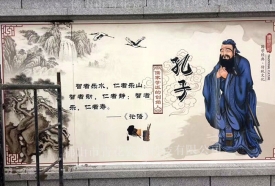 智者乐水，仁者乐山；
智者动，仁者静；智者
乐，仁者寿。
——《论语》
儒家学派的创始人
孔子